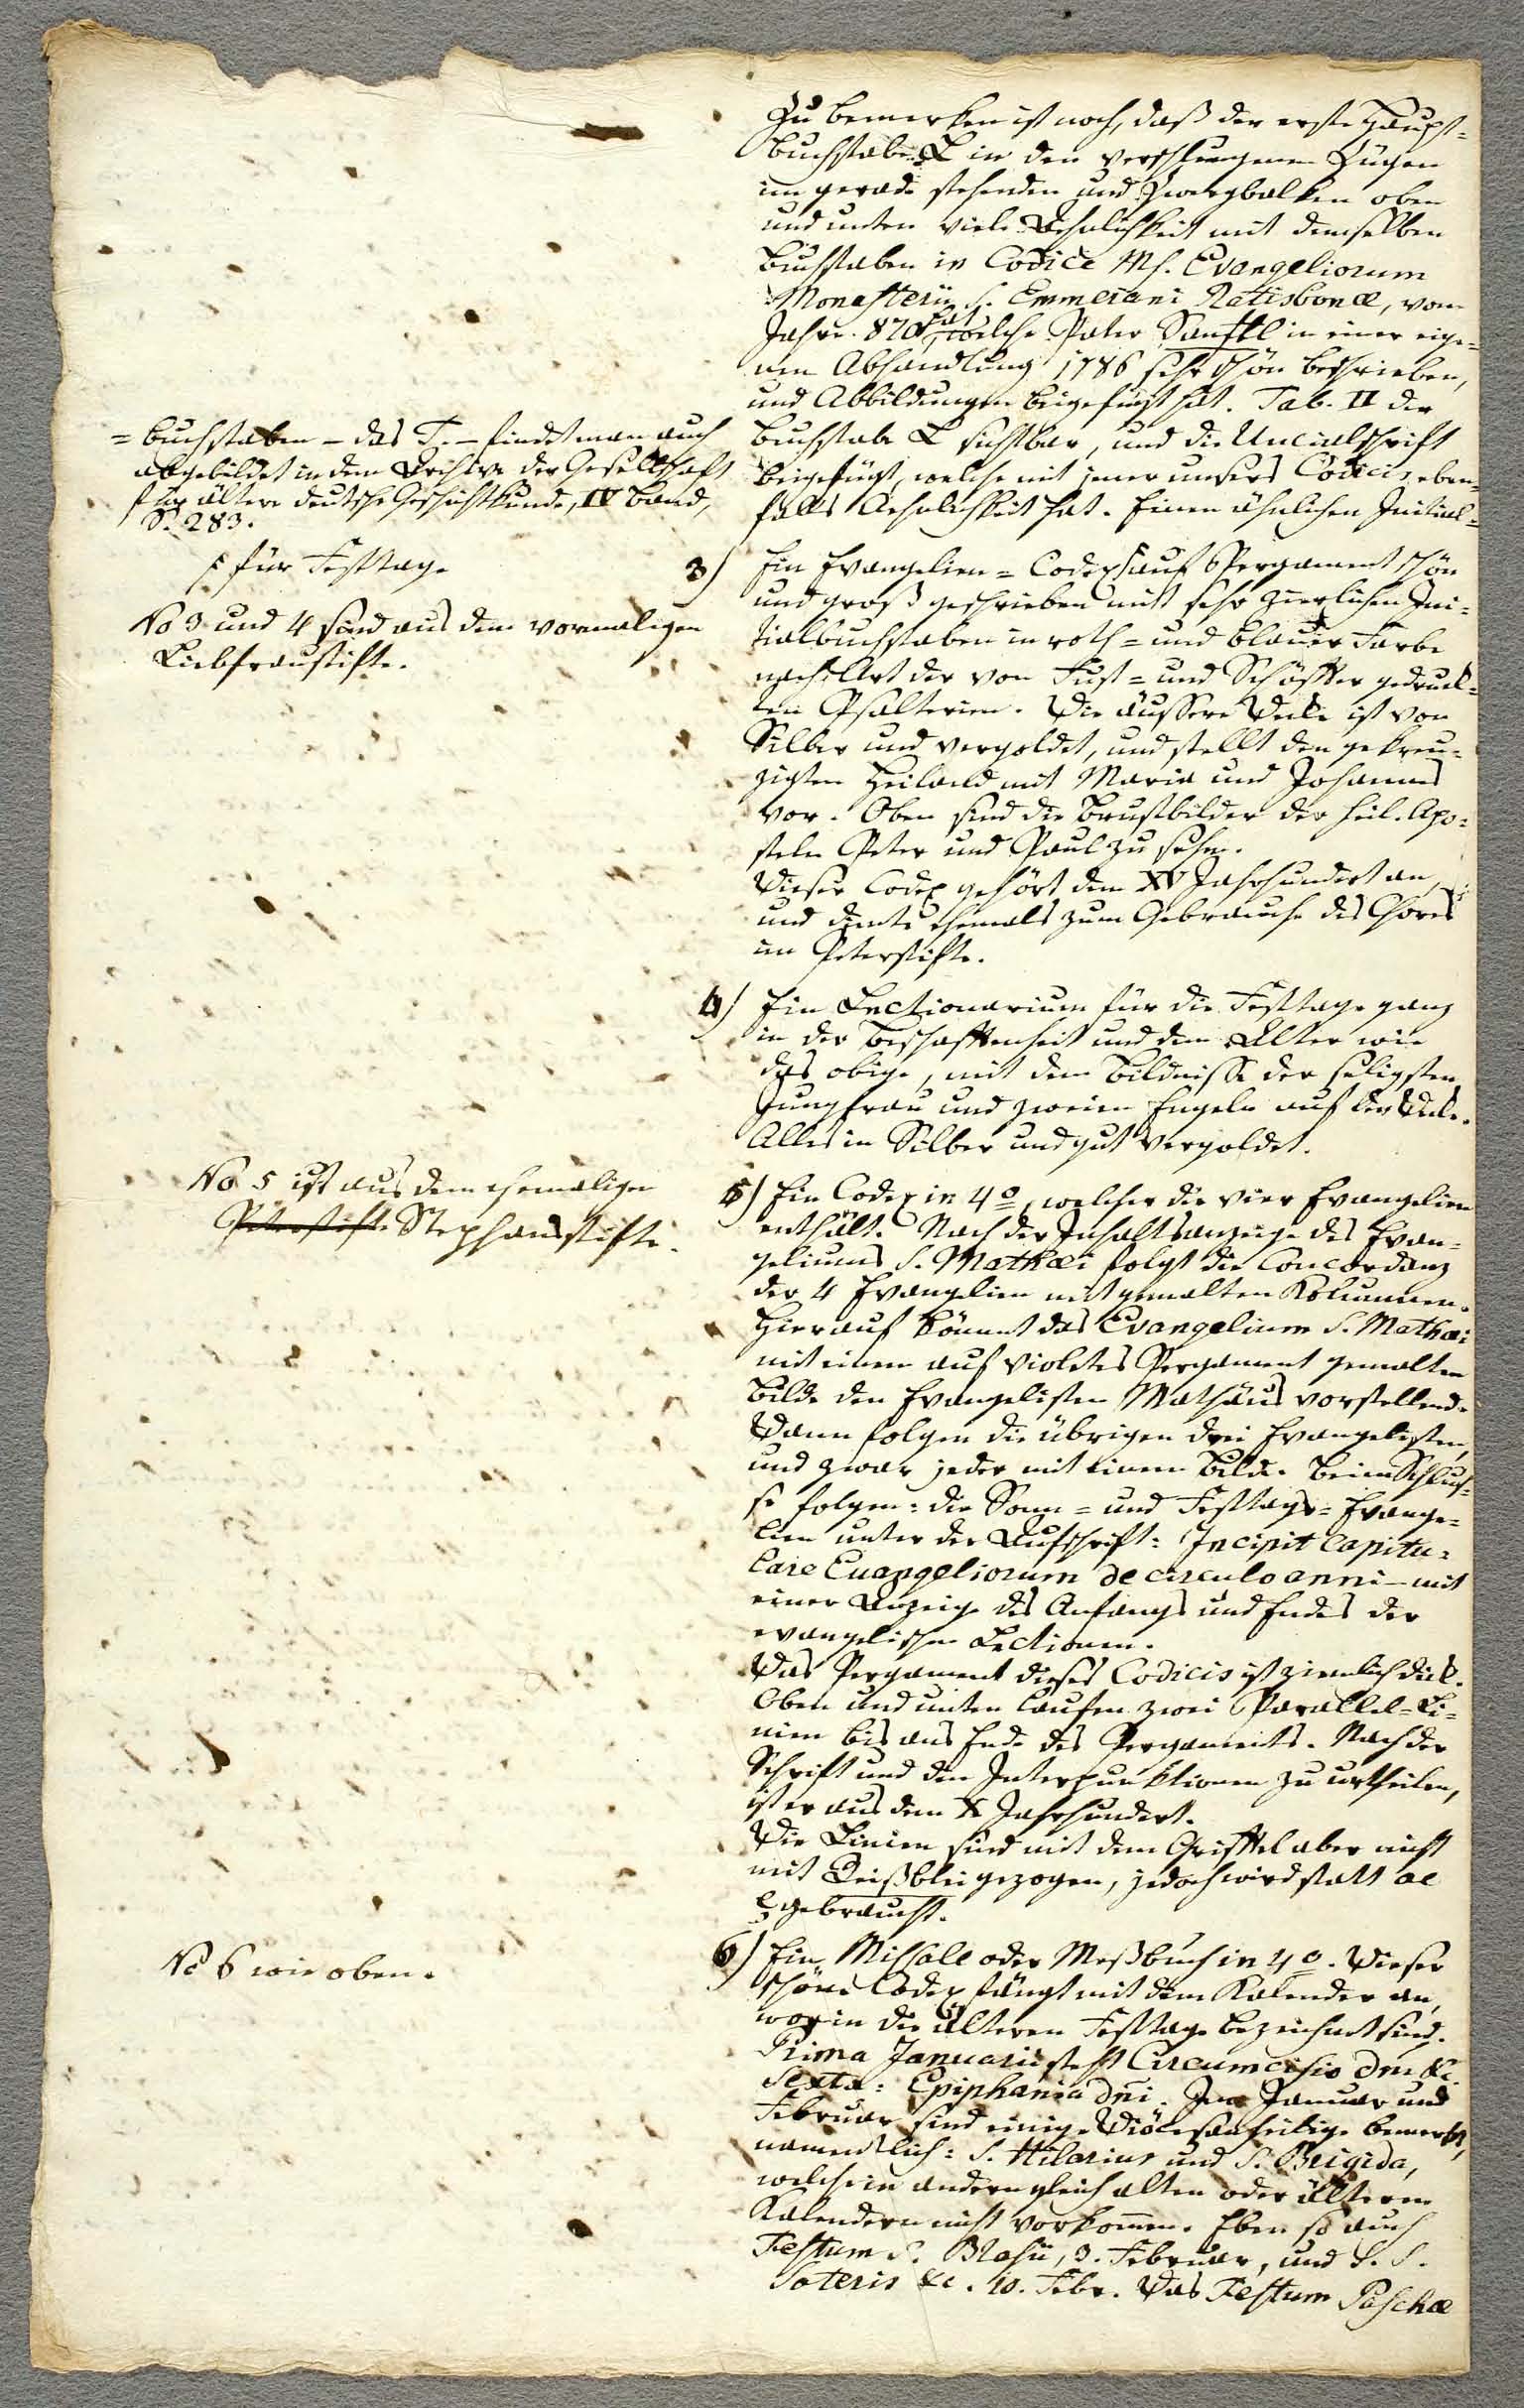 Zu bemerken ist noch, daß der erste Haupt=
buchstabe L in den verschlungenen Zügen
im gerade stehenden und Zwergbalken oben
und unten viele Aehnlichkeit mit demselben
Buchstaben in Codice Ms. Evangeliorum
Monasterii S. Emmerani Ratisbonæ, vom
Jahre 870 hat, welche Pater Sanftl in einer eige=
nen Abhandlung 1786 sehr schön beschrieben,
und Abbildungen beigefügt hat. Tab. II der
Buchstabe L sichtbar, und die Uncialschrift
beigefügt, welche mit jener unsers Codicis eben=
falls Aehnlichkeit hat. Einen ähnlichen Initial=
= buchstaben – das T. – findet man auch
abgebildet in dem Archive der Gesellschaft
für ältere deutsche Geschichtkunde, IV Band,
S. 283.
ſ für Festtage
3) Ein Evangelien = Codex ſ auf Pergament schön
und groß geschrieben mit sehr zierlichen Ini=
tialbuchstaben in roth = und blauer Farbe
nach Art der von Fust = und Schöffer gedruck=
ten Psalterien. Die äussere Decke ist von
Silber und vergoldet, und stellt den gekreu=
zigten Heiland mit Maria und Johannes
vor. Oben sind die Brustbilder der heil. Apo=
steln Peter und Paul zu sehen.
Dieser Codex gehört dem XV Jahrhundert an,
und diente ehemals zum Gebrauche des Chores
im Peterstifte.
No 3 und 4 sind aus dem vormaligen
Liebfraustifte.
4) Ein Lectionarium für die Festtage ganz
in der Beschaffenheit und dem Alter wie
das obige, mit dem Bildnisse der seligsten
Jungfrau und zweien Engeln auf der Decke.
Alles in Silber und gut vergoldet.
No 5 ist aus dem ehemaligen
Peterstifte Stephansstifte.
5) Ein Codex in 4º, welcher die vier Evangelien
enthält. Nach der Inhaltsanzeige des Evan=
geliums S. Mathæi folgt die Concordanz
der 4 Evangelien mit gemalten Kolumnen.
Hierauf kömmt das Evangelium S. Mathæi
mit einem auf violetes Pergament gemalten
Bilde den Evangelisten Mathäus vorstellend.
Dann folgen die übrigen drei Evangelisten,
und zwar jeder mit einem Bilde. Beim Schlus=
se folgen: die Sonn = und Festtags = Evange=
lien unter der Aufschrift: Incipit Capitu=
lare Euangeliorum de circulo anni – mit
einer Anzeige des Anfangs und Endes der
evangelischen Lectionen.
Das Pergament dieses Codicis ist ziemlich dick.
Oben und unten laufen zwei Parallel=Li=
nien bis ans Ende des Pergaments. Nach der
Schrift und den Interpunktionen zu urtheilen,
ist er aus dem X Jahrhundert.
Die Linien sind mit dem Griffel aber nicht
mit Reißblei gezogen, jedoch wird statt ae
ę gebraucht.
No 6 wie oben.
6) Ein Missale oder Meßbuch in 4º. Dieser
schöne Codex fängt mit dem Kalender an,
worin die älteren Festtage bezeichnet sind.
Prima Januarii steht Circumcisio Dni &c.
Sexta: Epiphania Dñi. Im Januar und
Februar sind einige Diöcesanheilige bemerkt,
namentlich: S. Hilarius und S. Brigida,
welche in andern gleich alten oder älteren
Kalendern nicht vorkom̄en. Eben so auch
Festum S. Blasii, 3. Februar, und S. S.
Soteris &c. 10. Febr. Das Festum Paschæ